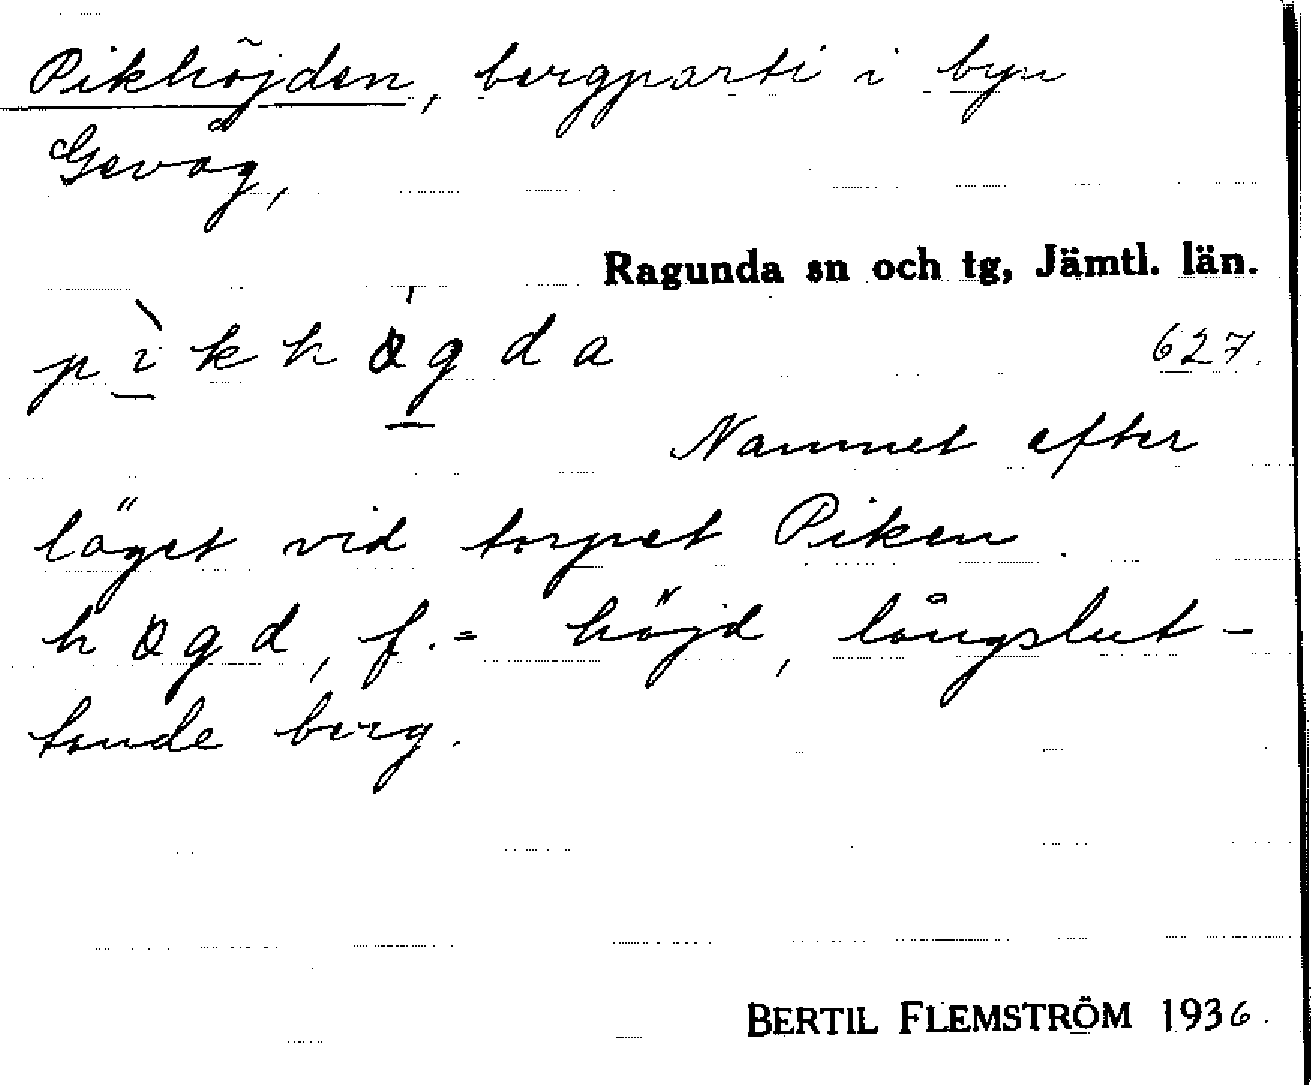 Pikhöjden, bergparti i byn
Gevåg,
Ragunda sn och tg, Jämtl. län.
pìkhø̍gda
627.
Namnet efter
läget vid torpet Piken.
høgd, f. = höjd, långslut-
tande berg.
BERTIL FLEMSTRÖM 1936.